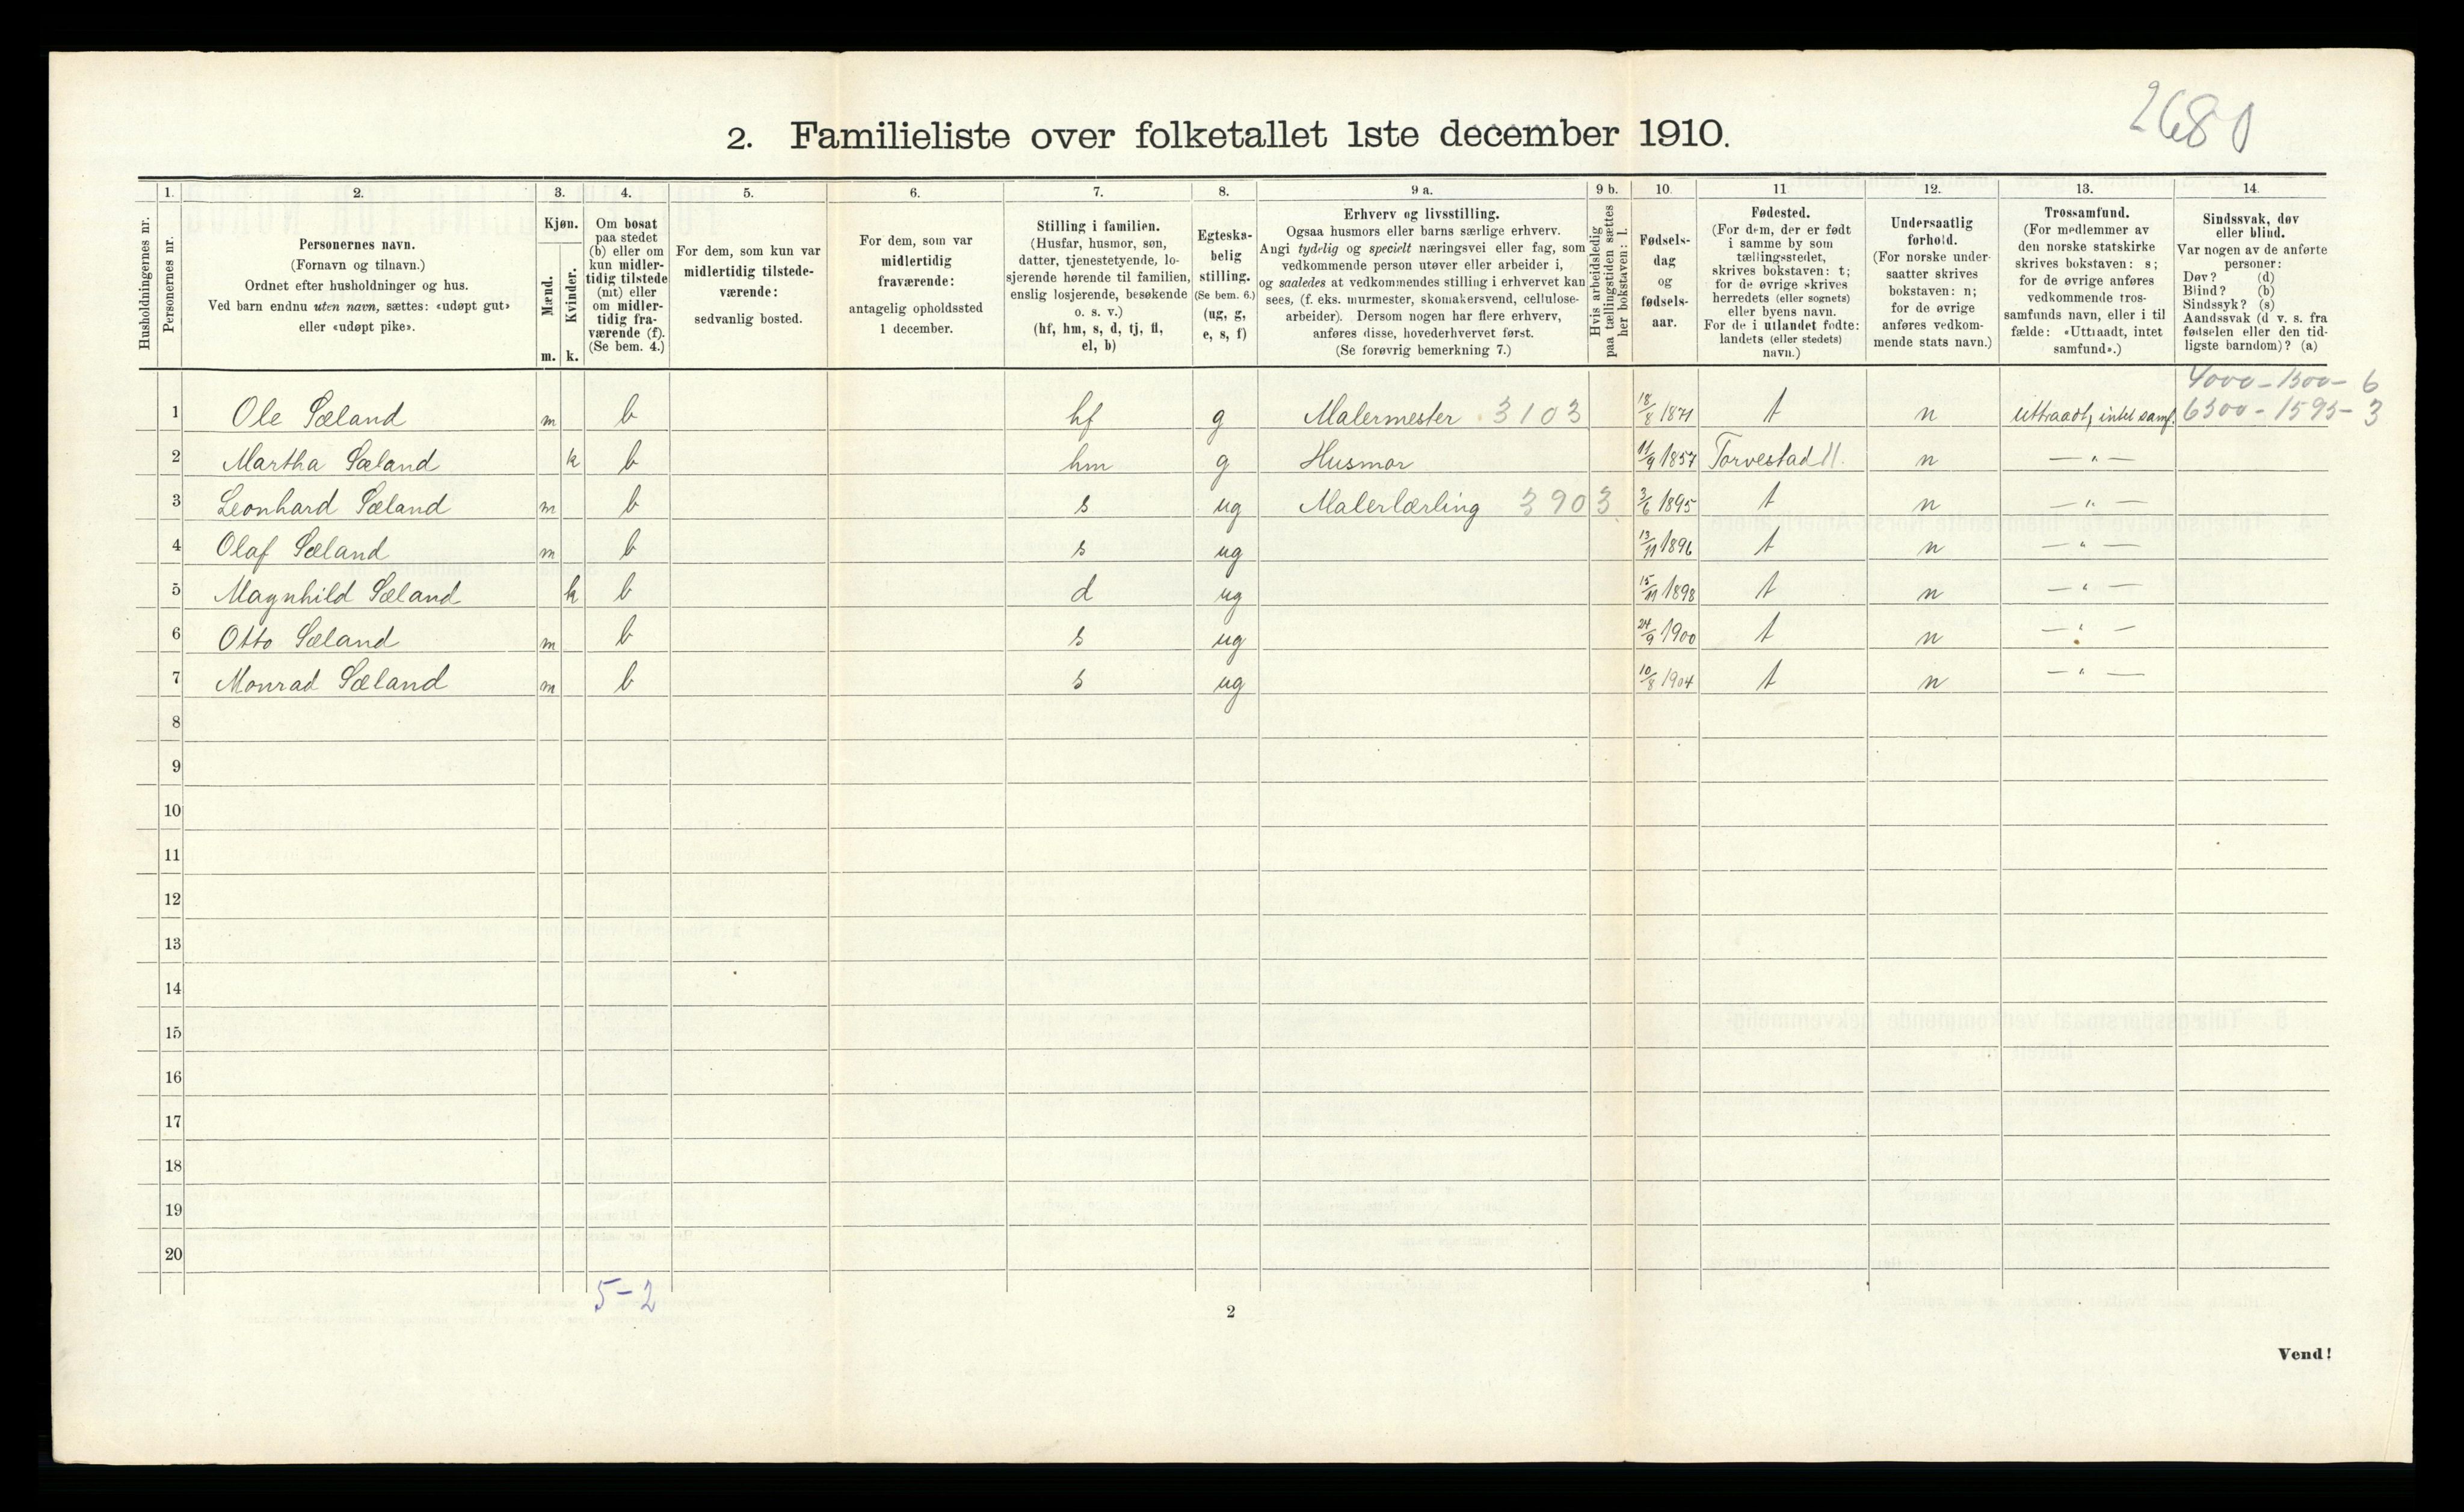 2680
2. Familieliste over folketallet 1ste december 1910.
Husholdningernes nr.
1. Personernes nr.
2. Personernes navn.
(Fornavn og tilnavn.)
Ordnet efter husholdninger og hus.
Ved barn endnu uten navn, sættes: «udøpt gut»
eller «udøpt pike».
3. Kjøn.
Mænd. m.
Kvinder. k.
4. Om bosat
paa stedet
(b) eller om
kun midler-
tidig tilstede
(mt) eller
om midler-
tidig fra-
værende (f).
(Se bem. 4.)
5. For dem, som kun var
midlertidig tilstede-
værende:
sedvanlig bosted.
6. For dem, som var
midlertidig
fraværende:
antagelig opholdssted
1 december.
7. Stilling i familien.
(Husfar, husmor, søn,
datter, tjenestetyende, lo-
sjerende hørende til familien,
enslig losjerende, besøkende
o. s. v.)
(hf, hm, s, d, tj, fl,
el, b)
8. Egteska-
belig
stilling.
(Se bem. 6.)
(ug, g,
e, s, f)
9 a. Erhverv og livsstilling.
Ogsaa husmors eller barns særlige erhverv.
Angi tydelig og specielt næringsvei eller fag, som
vedkommende person utøver eller arbeider i,
og saaledes at vedkommendes stilling i erhvervet kan
sees, (f. eks. murmester, skomakersvend, cellulose-
arbeider). Dersom nogen har flere erhverv,
anføres disse, hovederhvervet først.
(Se forøvrig bemerkning 7.)
9 b. Hvis arbeidsledig
paa tællingstiden sættes
her bokstaven: l.
10. Fødsels-
dag
og
fødsels-
aar.
11 Fødested.
(For dem, der er født
i samme by som
tællingsstedet,
skrives bokstaven: t;
for de øvrige skrives
herredets (eller sognets)
eller byens navn.
For de i utlandet fødte:
landets (eller stedets)
navn.)
12. Undersaatlig
forhold.
(For norske under-
saatter skrives
bokstaven: n;
for de øvrige
anføres vedkom-
mende stats navn.)
13. Trossamfund.
(For medlemmer av
den norske statskirke
skrives bokstaven: s;
for de øvrige anføres
vedkommende tros-
samfunds navn, eller i til
fælde: «Uttraadt, intet
samfund».)
14. Sindssvak, døv
eller blind.
Var nogen av de anførte
personer:
Døv? (d)
Blind? (b)
Sindssyk? (s)
Aandssvak (d v. s. fra
fødselen eller den tid-
ligste barndom)? (a)
4000 - 1300 - 6
1 Ole Sæland m b hf g Malermester 3103 18/8 1871 t n uttraadt, intet samf. 6300 - 1595 - 3
2 Martha Sæland k b hm g Husmor 11/9 1857 Torvestad n — " —
3 Leonhard Sæland m b s ug Malerlærling 3903 3/6 1895 t n — " —
4 Olaf Sæland m b s ug 13/11 1896 t n — " —
5 Magnhild Sæland k b d ug 15/11 1898 t n — " —
6 Otto Sæland m b s ug 24/9 1900 t n — " —
7 Monrad Sæland m b s ug 10/8 1904 t n — " —
8
9
10
11
12
13
14
15
16
17
18
19
20
5-2
2
Vend!